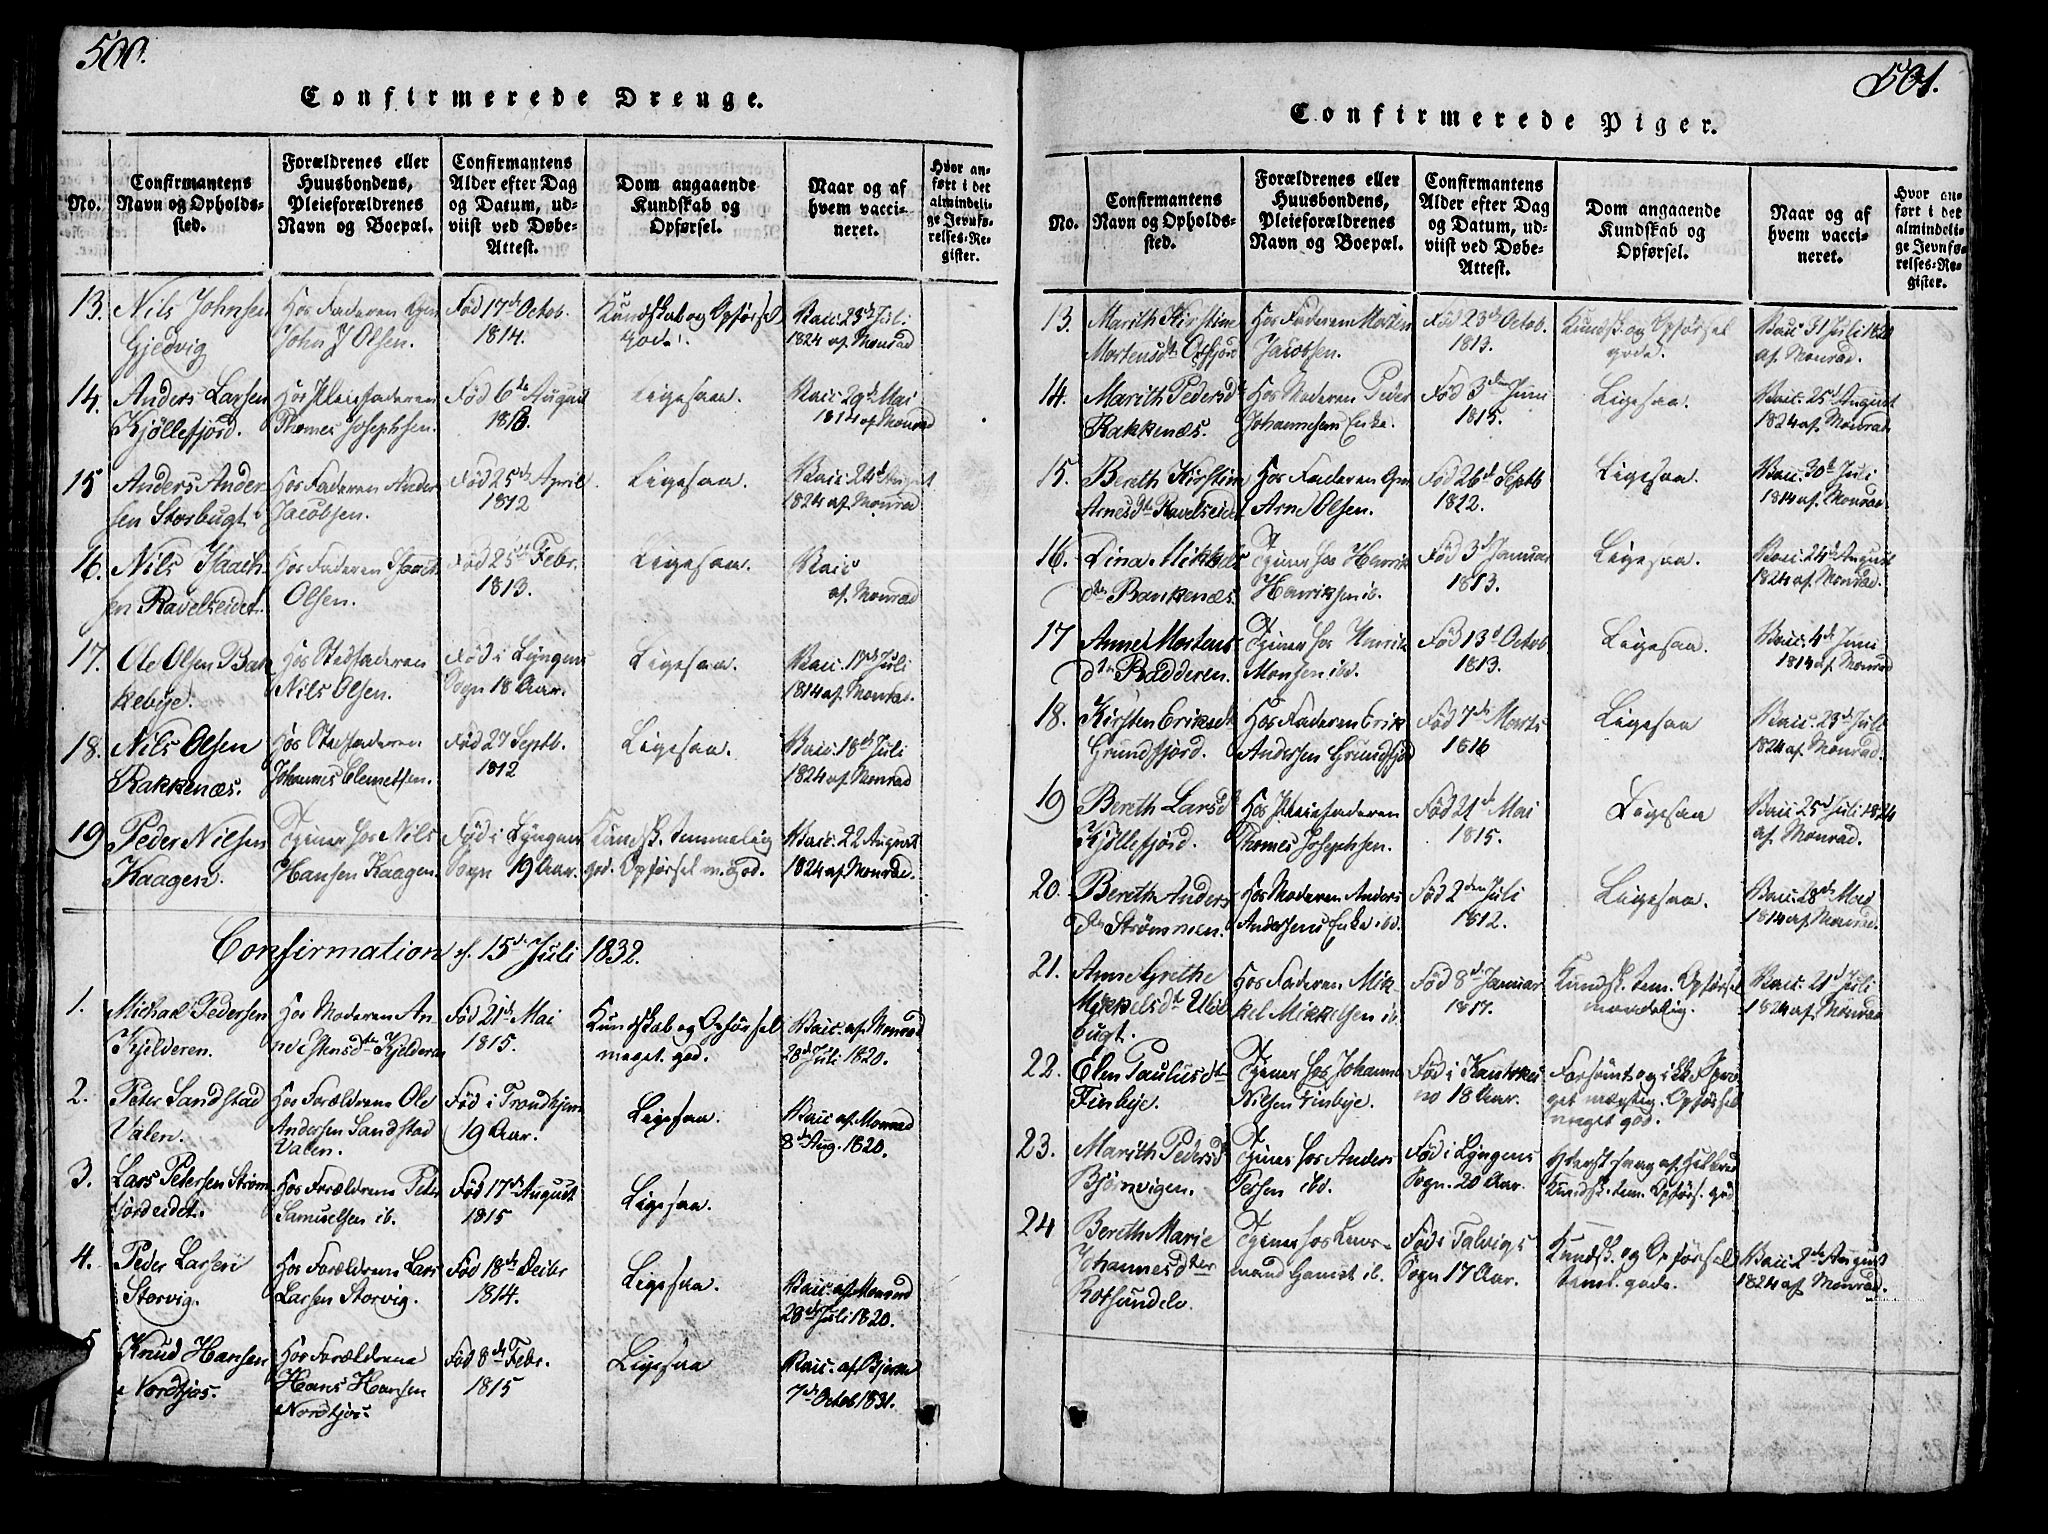 500.
Confirmerede Drenge.
No.
Confirmantens
Navn og Opholds-
sted.
Forældrenes eller
Huusbondens,
Pleieforældrenes
Navn og Boepæl.
Confirmantens
Alder efter Dag
og Datum, ud-
viist ved Døbe-
Attest.
Dom angaaende
Kundskab og
Opførsel.
Naar og af
hvem vacci-
neret.
Hvor an-
ført i det
almindeli-
ge Jevnfø-
relses-Re-
gister.
13. Nils Johnsen Hos Faderen Født 17de Octob. Kundskab og Opførsel Vacc. 23de Juli
Gjedvig John J Olsen. 1814. gode. 1824 af Monrad
14. Anders Larsen Hos Pleiefaderen Fød 6te August Ligesaa. Vacc. 29de Mai
Kjøllefjord. Thomes Josephsen. 1814 af Monrad
15 Anders Ander- Hos Faderen Anders Fød 25de April Ligesaa. Vacc. 24de August
sen Storbugt. Jacobsen. 1812 1824 af Monrad
16. Nils Isach- Hos Faderen Isach Fød 25de Febr. Ligesaa. Vacc
sen Ravelseidet. Olsen. 1813. af Monrad
17. Ole Olsen Bak- Hos Stedfaderen Fød i Lyngens Ligesaa. Vacc. 17de Juli
kebye. Nils Olsen. Sogn 18 Aar. 1814 af Monrad.
18. Nils Olsen Hos Stedfaderen Fød 27 Septb. Ligesaa. Vacc. 18de Juli
Rakkenæs. Johannes Clemetsen. 1812 1824 af Monrad
19. Peder Nilsen Tjener hos Nils Fød i Lyngens Kundsk. temmelig Vacc. 22 August
Kaagen. Hansen Kaagen. Sogn 19 Aar. god. Opførsel m. god. 1824 af Monrad.
Confirmation d. 15de Juli 1832.
1. Michael Pedersen Hos Moderen An- Fød 21de Mai Kundskab og Opførsel Vacc. af Monrad
Kjelderen. ne Istensdtr Kjelderen 1815. meget god. 28de Juli 1820.
2. Peter Sandstad Hos Forældrene Ole Fød i Trondhjem Ligesaa. Vacc af Monrad
Valen. Andersen Sandstad 19 Aar. 8de Aug. 1820.
Valen.
3. Lars Petersen Strøm- Hos Forældrene Peter Fød 17de August Ligesaa.
fjordeidet. Samuelsen ib. 1815
4. Peder Larsen Hos Forældrene Lars Fød 18de Decbr Ligesaa. Vacc. af Monrad
Storvig. Larsen Storvig. 1814. 28de Juli 1820.
5 Knud Hansen Hos Forældrene Fød 8de Febr. Ligesaa Vacc. af
Nordkjos. Hans Hansen 1815 7de Octob 1831.
Nordkjos.
501.
Confirmerede Piger.
No.
Confirmantens
Navn og Opholds-
sted.
Forældrenes eller
Huusbondens,
Pleieforældrenes
Navn og Boepæl.
Confirmantens
Alder efter Dag
og Datum, ud-
viist ved Døbe-
Attest.
Dom angaaende
Kundskab og
Opførsel.
Naar og af
hvem vacci-
neret.
Hvor an-
ført i det
almindeli-
ge Jevnfø-
relses-Re-
gister.
13. Marith Kirstine Hos Faderen Morten Fød 23de Octob. Kundsk. og Opførsel Vacc 31 Juli 1820
Mortensdtr Oxfjord Jacobsen. 1813. gode. af Monrad.
14. Marith Pedersd Hos Moderen Peder Fød 3den Juni Ligesaa. Vacc. 25de August
Rakkenæs. Johannesens Enke. 1815. 1824 af Monrad
15. Bereth Kirstine Hos Faderen Fød 26de Septb Ligesaa. Vacc. 30te Juli
Arnesdtr Ravelseidet Arne Olsen. 1812. 1814 af Monrad.
16. Dina Mikkels- Tjener hos Henrik Fød 3de Januar Ligesaa. Vacc. 24de August
dtr Bankenæs. Henriksen ib. 1813. 1824 af Monrad.
17 Anne Mortens- Tjener hos Henrik Fød 13de Octob Ligesaa. Vacc. 4de Juni
dtr Radderen. Monsen ibd. 1813. 1814 af Monrad
18. Kirsten Eriksdtr Hos Faderen Erik Fød 7de Marts Ligesaa Vacc. 23de Juli
Grundfjord. Andersen Grundfjord 1816 1824 af Monrad.
19 Bereth Larsd Hos Pleiefaderen Fød 21de Mai Ligesaa Vacc 25de Juli 1824
Kjøllefjord. Thomes Josephsen. 1815. af Monrad.
20. Bereth Anders- Hos Moderen Anders Fød 2den Juli Ligesaa. Vacc. 18de Mai
dtr Strømmen. Andersens Enke ibd. 1812. 1814 af Monrad.
21. Anne Grethe Hos Faderen Mik- Fød 8de Januar Kundsk. tem. Opførsel Vacc. 21de Juli
Mikkelsdtr Ulve- kel Mikkelsen ib. 1817. maadelig. 1824 af Monrad
bugt.
22. Elen Paulusdtr Tjener hos Johannes Fød i Kautokei- Forsømt og i Spro-
Finbye. Nilsen Finbye. no 18 Aar. get mægtig. Opførsel
meget god.
23. Marith Pedersd Tjener hos Anders Fød i Lyngens
Bjørnvigen. Persen ibd. Sogn. 20 Aar. Kundsk. tem. Opførs. god
24 Bereth Marie Tjener hos Fød i Talvigs Kundsk. og Opførsel Vacc 2de August
Johannesdtter mand ib. Sogn 17 Aar. teml. gode. 1824 af Monrad.
Rotsundelv.